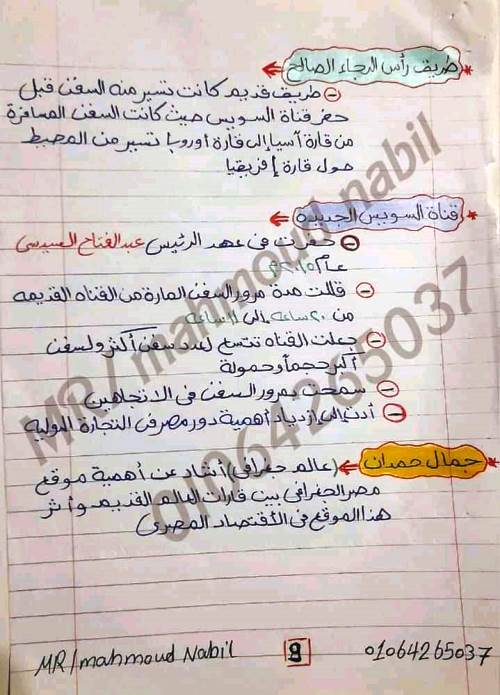 * طريق رأس الرجاء الصالح ⇐
⊖ طريق قديم كانت تسير منه السفن قبل
حفر قناة السويس حيث كانت السفن المسافرة
من قارة آسيا إلى قارة أوروبا تسير من المحيط
حول قارة إفريقيا
* قناة السويس الجديدة ⇐
⊖ حفرت فى عهد الرئيس عبد الفتاح السيسى
عام ٢٠١٥م
⊖ قللت مدة مرور السفن المارة من القناه القديمه
من ٢٠ ساعه إلى ١١ ساعه
⊖ جعلت القناه تتسع لعدد سفن أكثر ولسفن
أكبر حجماً وحمولة
⊖ سمحت بمرور السفن فى الاتجاهين
⊖ أدت إلى إزدياد أهمية دور مصر فى التجارة الدولية
* جمال حمدان ⇐ (عالم جغرافى) أشاد عن أهمية موقع
مصر الجغرافى بين قارات العالم القديم وأثر
هذا الموقع فى الأقتصاد المصرى
MR/mahmoud nabil
01064265037
MR/mahmoud Nabil 9 01064265037